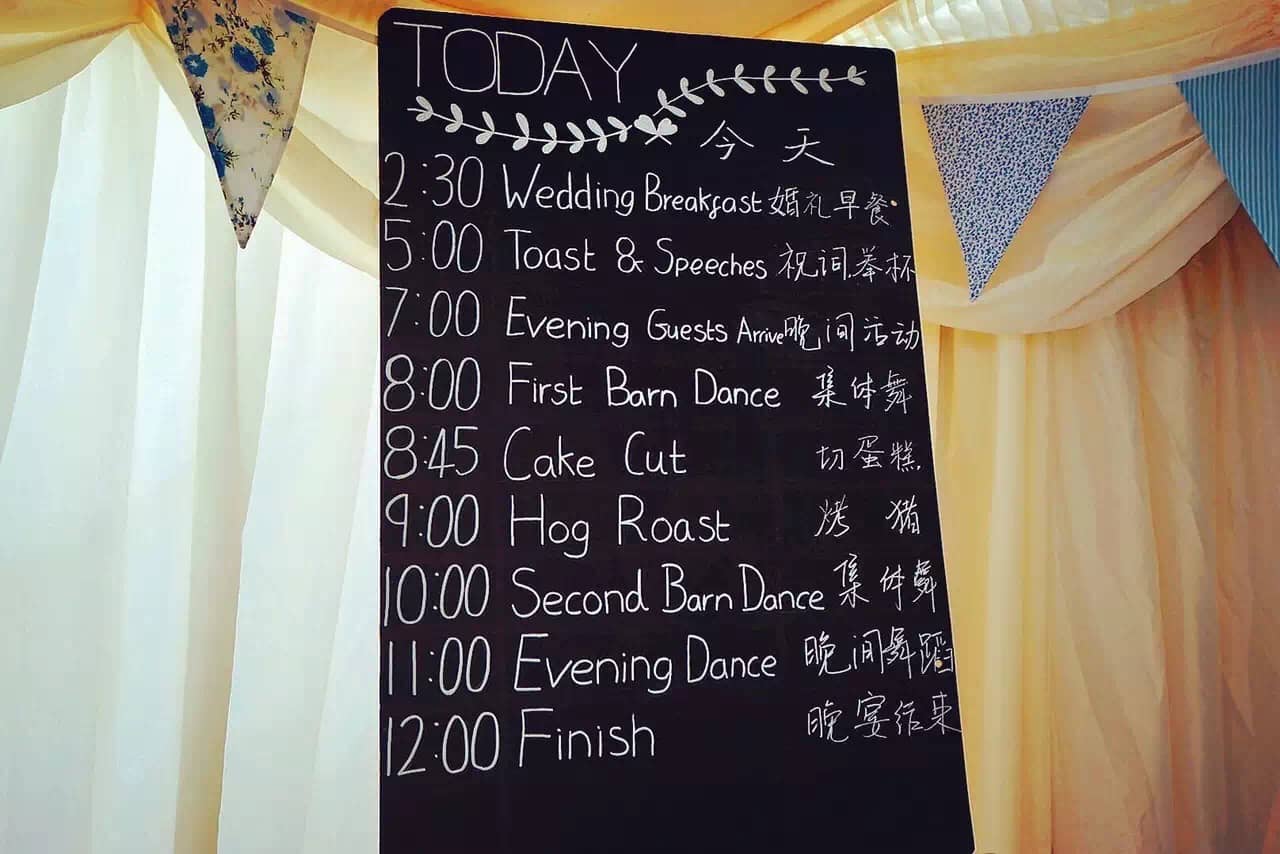 TODAY
今天
2:30 Wedding Breakfast 婚礼早餐
5:00 Toast & Speeches 祝词.举杯
7:00 Evening Guests Arrive 晚间活动
8:00 First Barn Dance 集体舞
8:45 Cake Cut 切蛋糕
9:00 Hog Roast 烤猪
10:00 Second Barn Dance 集体舞
11:00 Evening Dance 晚间舞蹈
12:00 Finish 晚宴结束